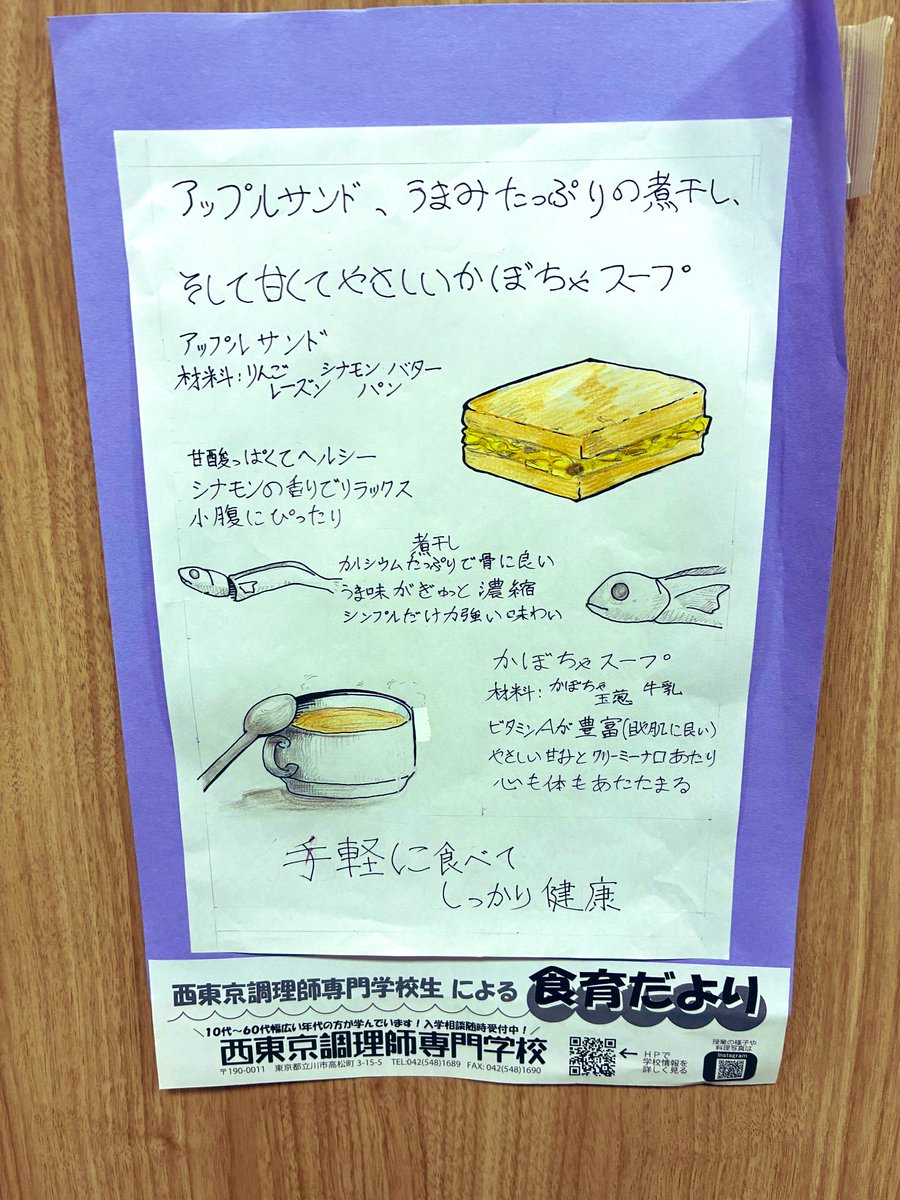 アップルサンド、うまみたっぷりの煮干し、
そして甘くてやさしいかぼちゃスープ
アップルサンド
材料:りんご シナモン バター
レーズン パン
甘酸っぱくてヘルシー
シナモンの香りでリラックス
小腹にぴったり
煮干し
カルシウムたっぷりで骨に良い
うま味がぎゅっと濃縮
シンプルだけ力強い味わい
かぼちゃスープ
材料:かぼちゃ 玉葱 牛乳
ビタミンAが豊富(目や肌に良い)
やさしい甘みとクリーミーナ口あたり
心も体もあたたまる
手軽に食べて
しっかり健康
西東京調理師専門学校生による 食育だより
\10代〜60代幅広い年代の方が学んでいます!入学相談随時受付中!/
西東京調理師専門学校
〒190-0011 東京都立川市高松町3-15-5 TEL:042(548)1689 FAX:042(548)1690
←HPで
学校情報を
詳しく見る
授業の様子や
料理写真は
Instagram